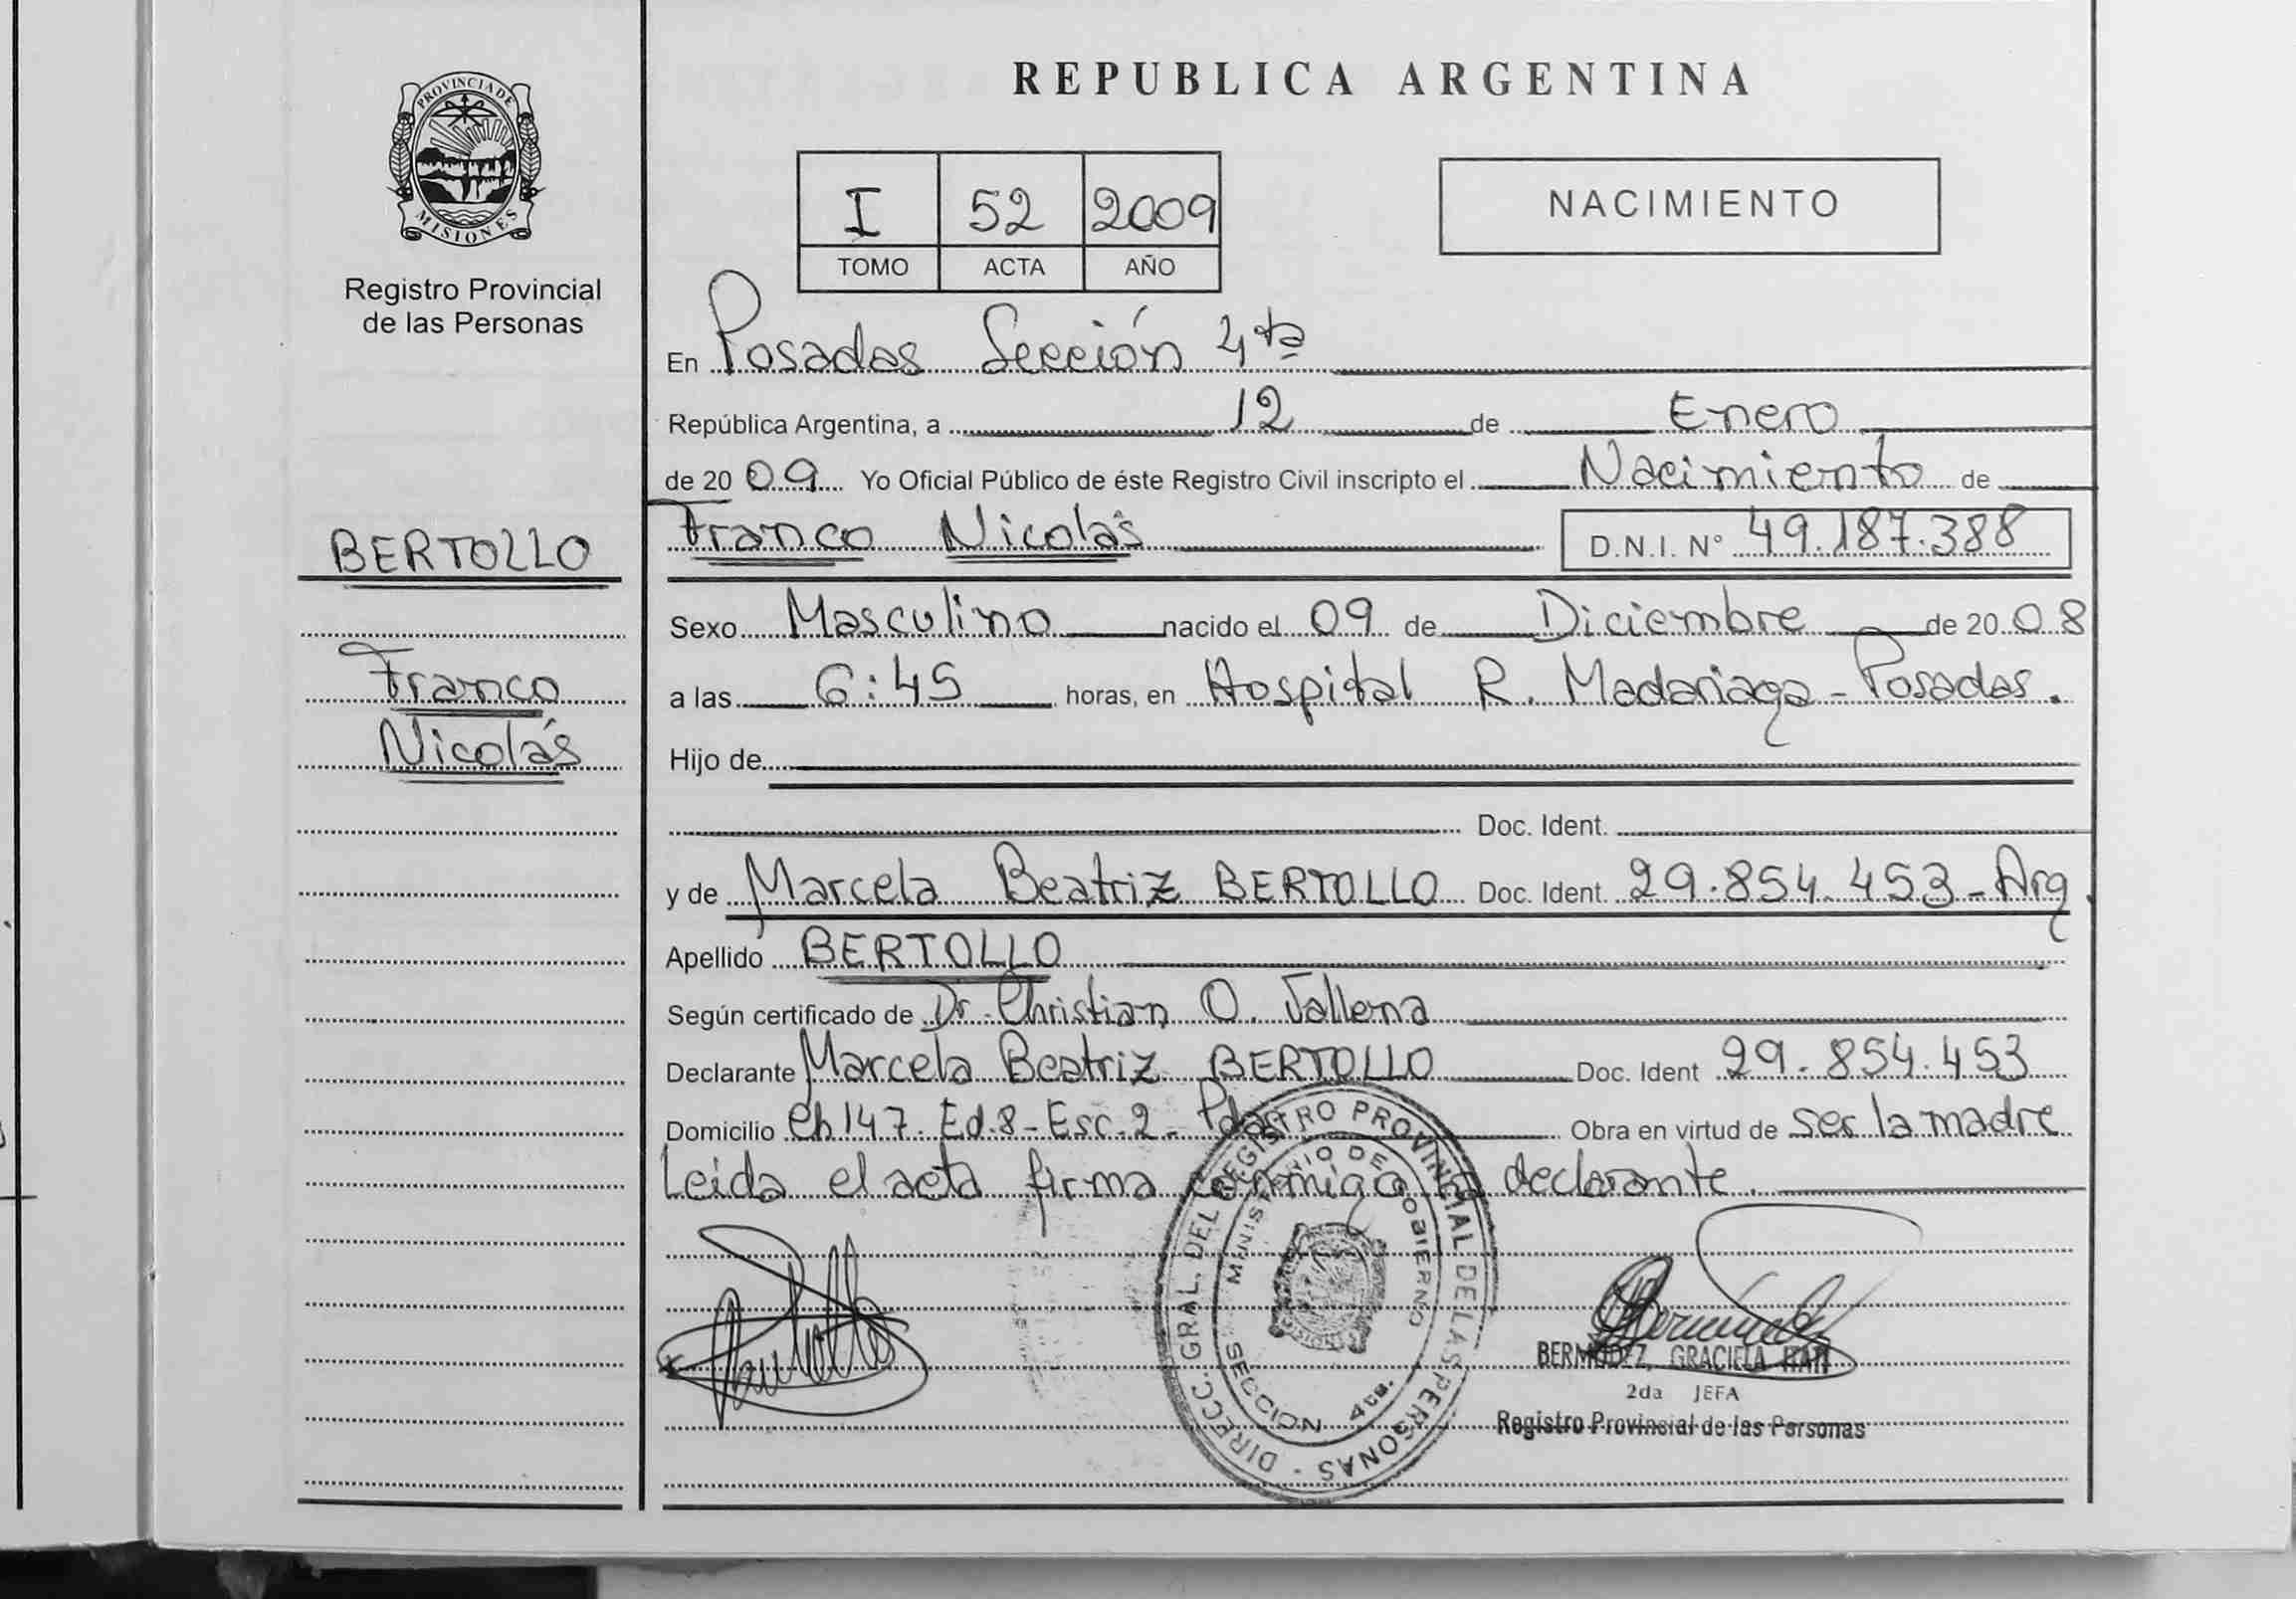 PROVINCIA DE
MISIONES
Registro Provincial
de las Personas
BERTOLLO
Franco
Nicolás
REPUBLICA ARGENTINA
I 52 2009
TOMO ACTA AÑO
NACIMIENTO
En Posadas Sección 4ta
República Argentina, a 12 de Enero
de 20 09 Yo Oficial Público de éste Registro Civil inscripto el Nacimiento de
Franco Nicolás D.N.I. N° 49.187.388
Sexo Masculino nacido el 09 de Diciembre de 20 08
a las 6:45 horas, en Hospital R. Madariaga - Posadas.
Hijo de
Doc. Ident.
y de Marcela Beatriz BERTOLLO Doc. Ident. 29.854.453 - Arg.
Apellido BERTOLLO
Según certificado de Dr. Christian O. Vallena
Declarante Marcela Beatriz BERTOLLO Doc. Ident 29.854.453
Domicilio Ch 147. Ed.8 - Esc.2 - Pdas Obra en virtud de ser la madre
Leída el acta firma conmigo la declarante.
DIRECC. GRAL. DEL REGISTRO PROVINCIAL DE LAS PERSONAS -
MINISTERIO DE GOBIERNO
SECCION 4ta.
BERMUDEZ, GRACIELA
2da JEFA
Registro Provincial de las Personas